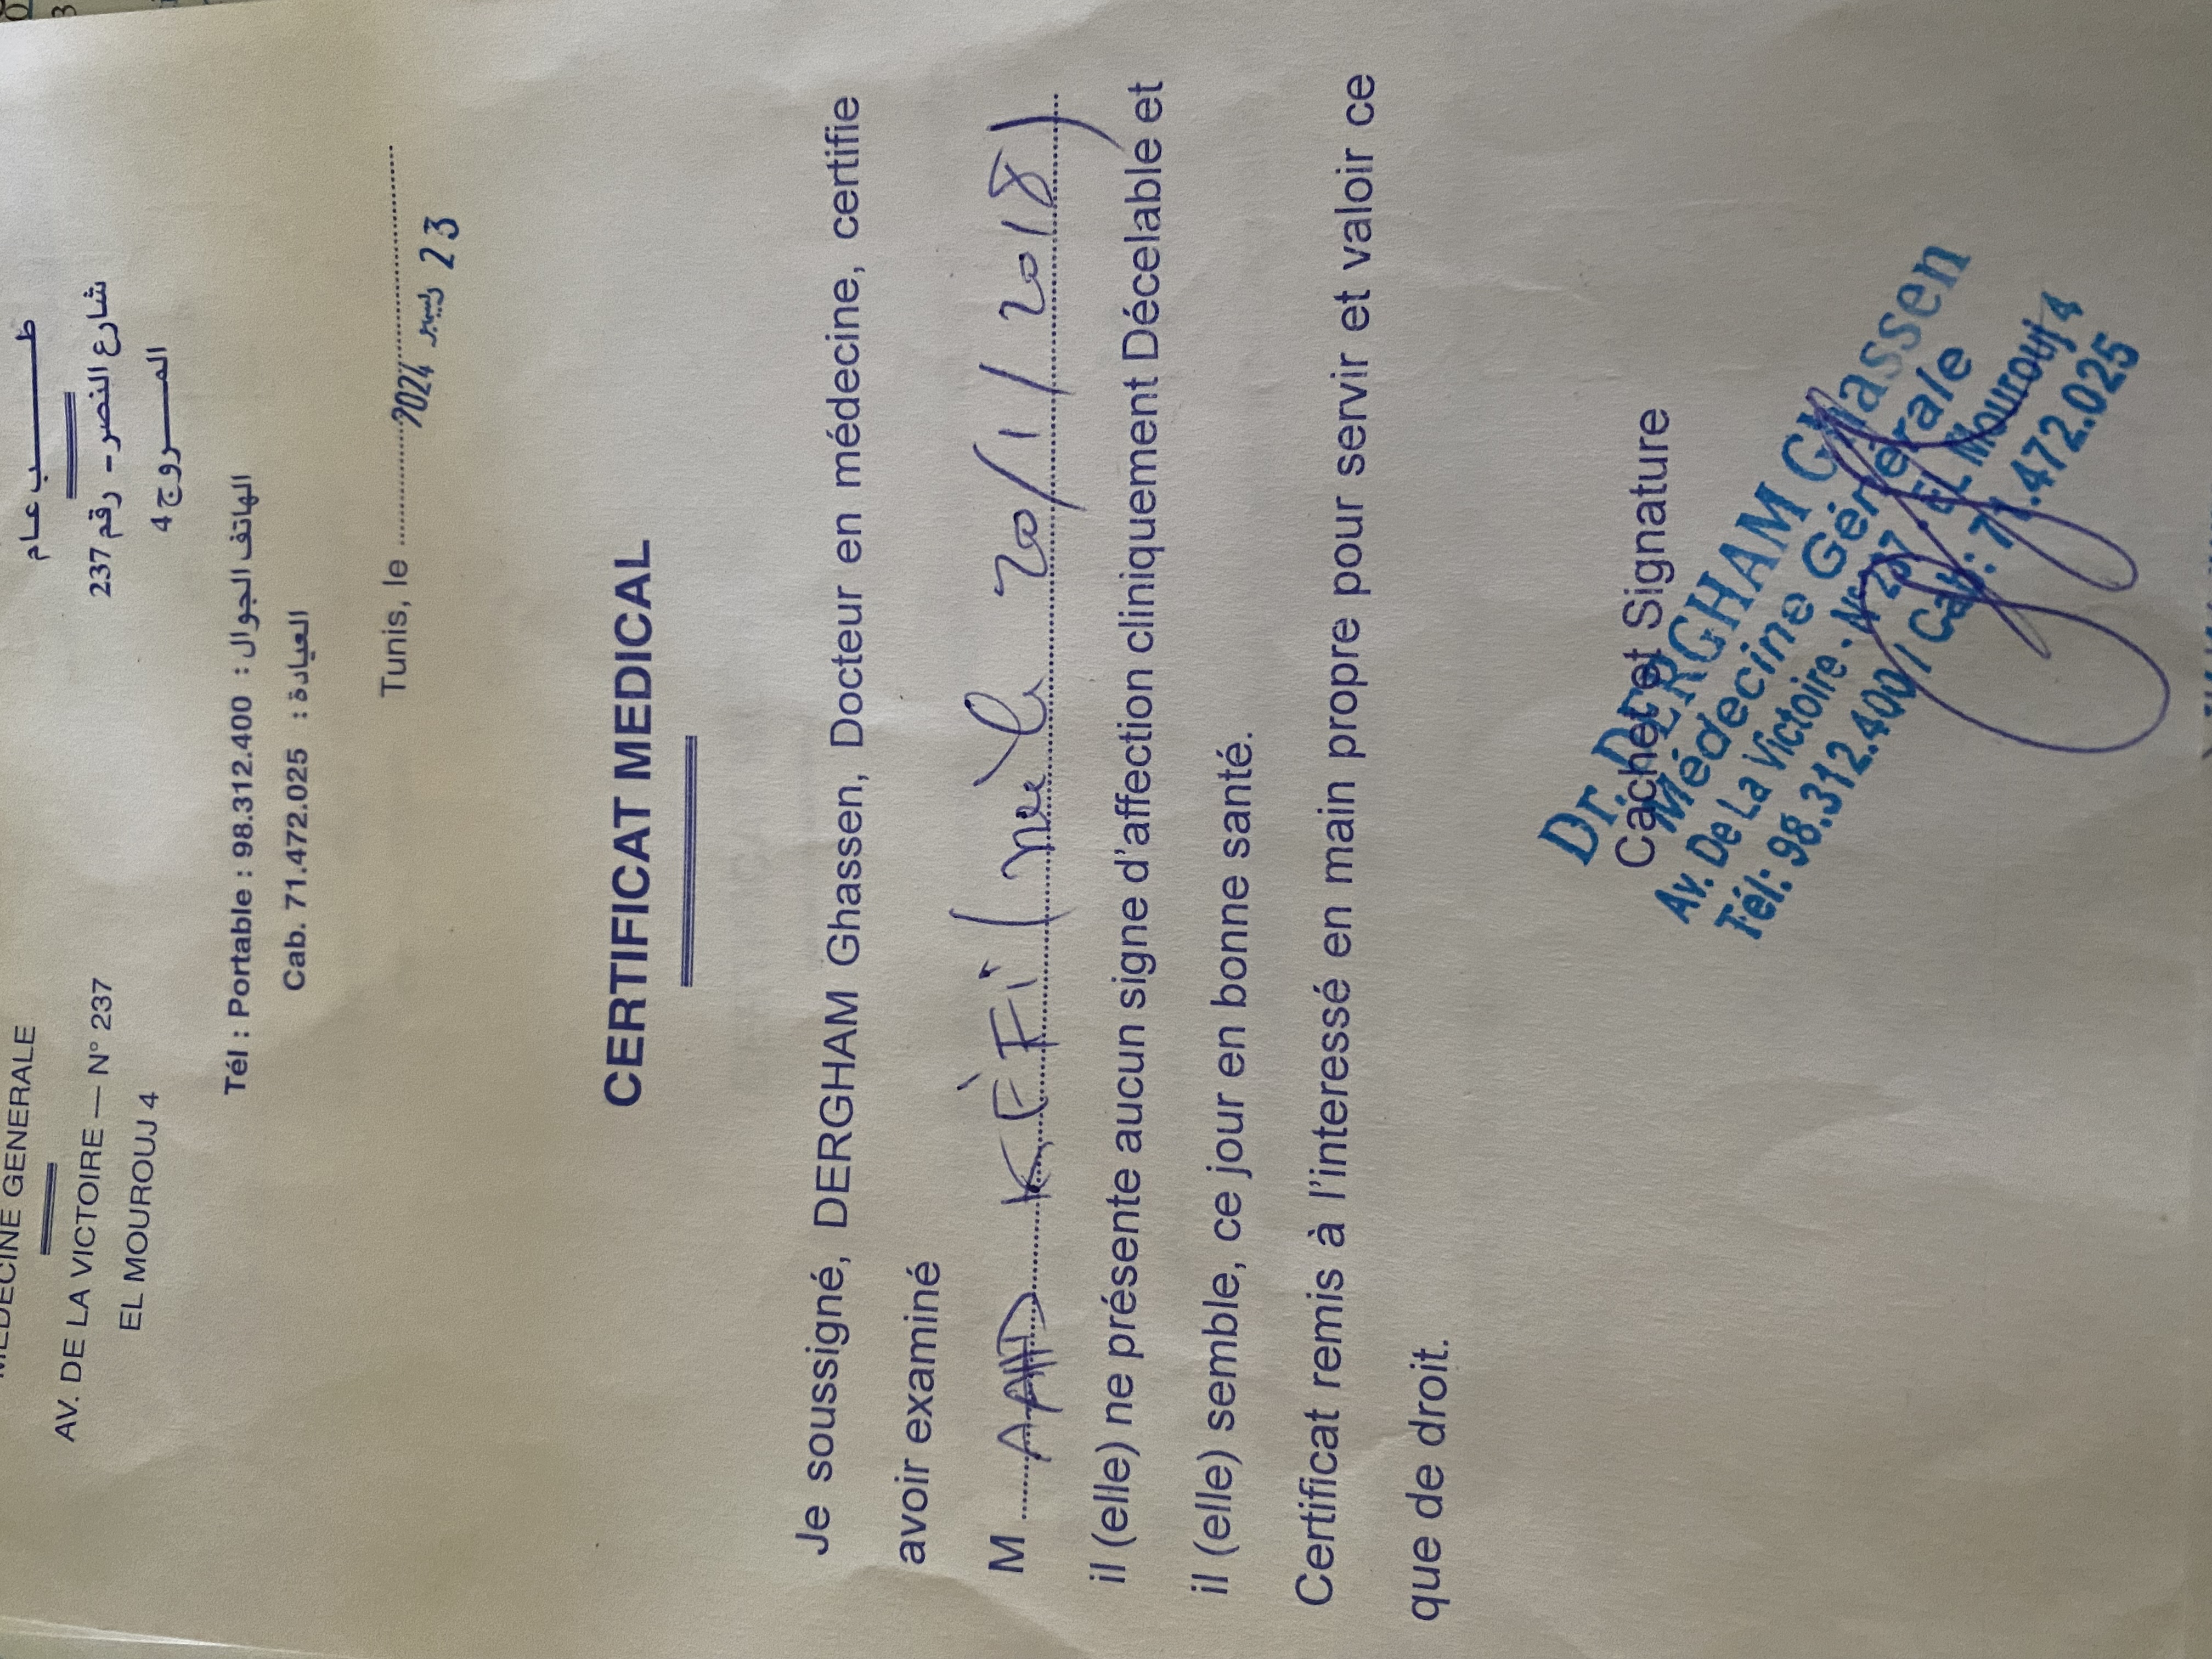 MEDECINE GENERALE
AV. DE LA VICTOIRE — N° 237
EL MOUROUJ 4
طـــب عــام
شارع النصر - رقم 237
المــــروج 4
Tél : Portable : 98.312.400 : الهاتف الجوال
Cab. 71.472.025 : العيادة
Tunis, le 2024 ديسمبر 23
CERTIFICAT MEDICAL
Je soussigné, DERGHAM Ghassen, Docteur en médecine, certifie
avoir examiné
M KÈFi (né le 20/1/2018)
il (elle) ne présente aucun signe d'affection cliniquement Décelable et
il (elle) semble, ce jour en bonne santé.
Certificat remis à l'interessé en main propre pour servir et valoir ce
que de droit.
Cachet et Signature
Dr. DERGHAM Ghassen
Médecine Générale
Av. De La Victoire - N° 237 - EL Mourouj 4
Tél: 98.312.400 / Cab: 71.472.025